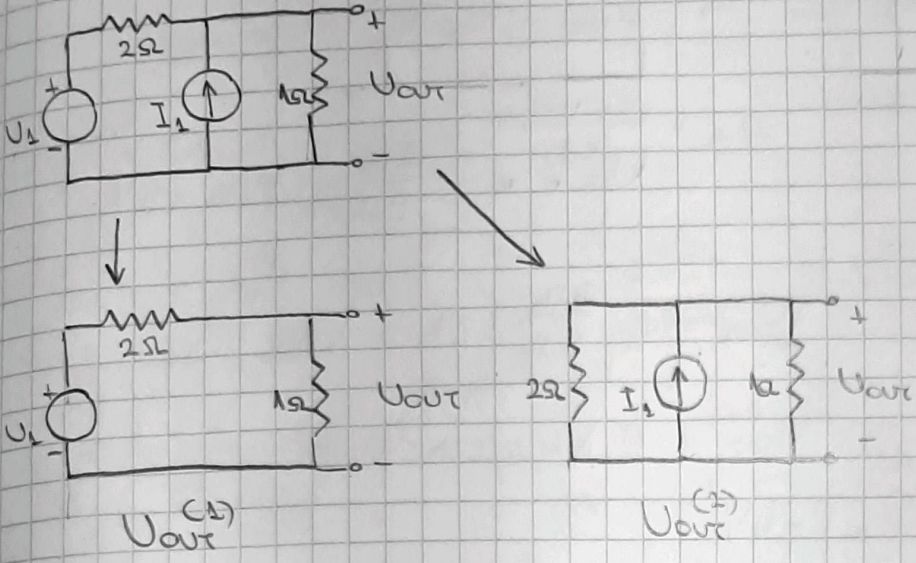 2Ω
+
+
U1
-
I1
1Ω
Uout
-
2Ω
+
+
U1
-
1Ω
Uout
-
Uout(1)
2Ω
I1
1Ω
+
Uout
-
Uout(2)